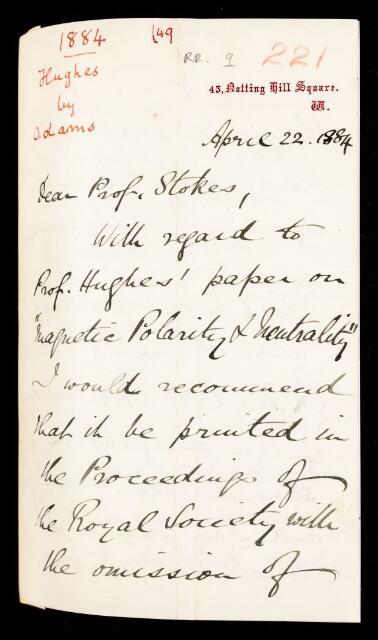 1884
(49
RR. 9
221
Hughes
by
Adams
43, Notting Hill Square.
W.
April 22. 1884
Dear Prof. Stokes,
With regard to
Prof. Hughes' paper on
"Magnetic Polarity & Neutrality"
I would recommend
that it be printed in
the Proceedings of
the Royal Society with
the omission of